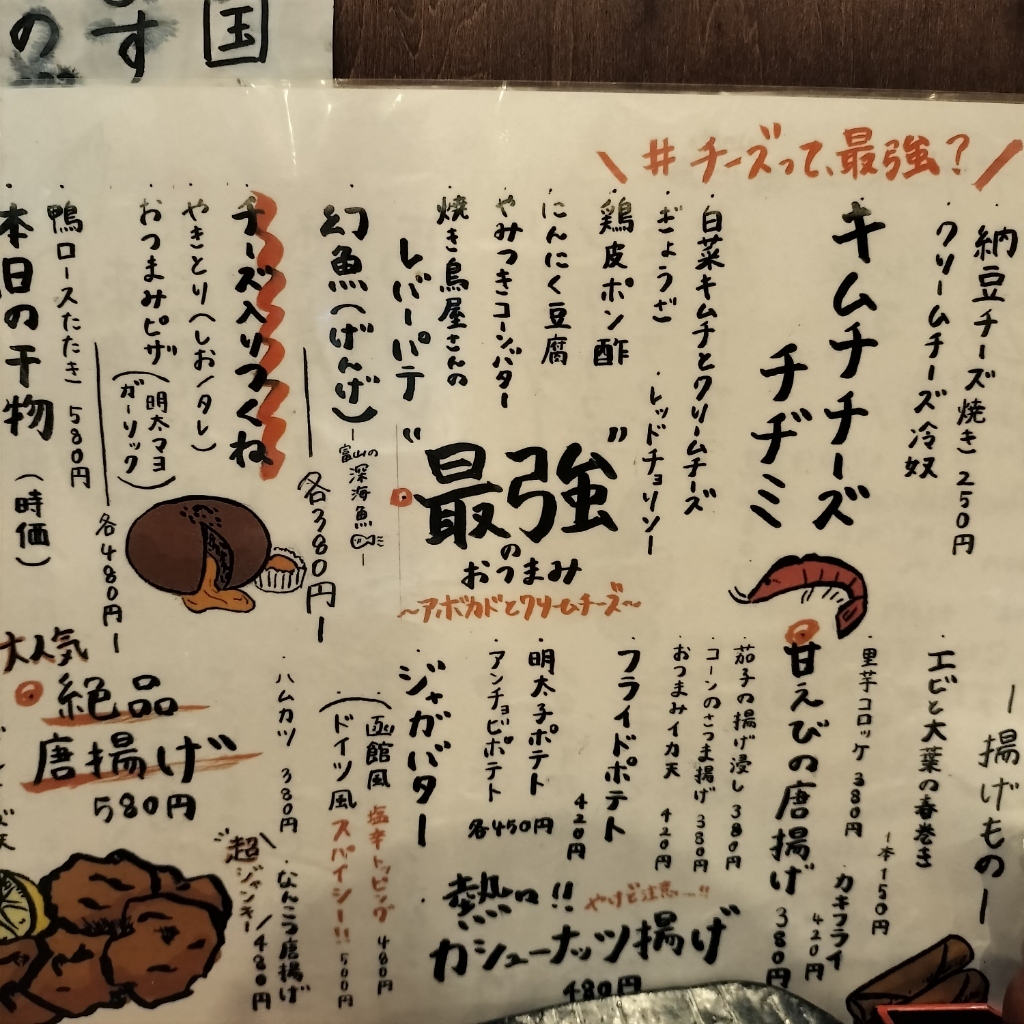 国
す
の
\ #チーズって、最強？ /
・納豆チーズ焼き 250円
・クリームチーズ冷奴
・キムチチーズ
チヂミ
・白菜キムチとクリームチーズ
・ぎょうざ
・レッドチョリソー
・鶏皮ポン酢
・にんにく豆腐
・やみつきコーンバター
・焼き鳥屋さんの
レバーパテ
“最強”
の
おつまみ
～アボカドとクリームチーズ～
・幻魚（げんげ）
富山の
深海魚
各380円
・チーズ入りつくね
・やきとり（しお/タレ）
・おつまみピザ
（明太マヨ
ガーリック）
各480円
・鴨ロースたたき 580円
・本日の干物（時価）
ー揚げものー
・エビと大葉の春巻き
1本150円
・里芋コロッケ 380円
・カキフライ
420円
・甘えびの唐揚げ 380円
・茄子の揚げ浸し 380円
・コーンのさつま揚げ 380円
・おつまみイカ天 420円
・フライドポテト
420円
・明太子ポテト
・アンチョビポテト
各450円
・ジャガバター
（・函館風 塩辛トッピング 480円
・ドイツ風 スパイシー!! 500円
熱っ!!
やけど注意…!!
カシューナッツ揚げ
480円
・ハムカツ 380円
・なんこつ唐揚げ
480円
超
ジャンキー
大人気
絶品
唐揚げ
580円
天